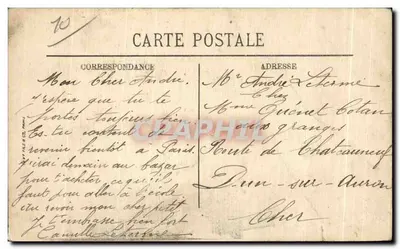 10
CARTE POSTALE
CORRESPONDANCE
ADRESSE
Mon Cher André.
j'espère que tu te
portes toujours bien
Es-tu content de
revenir bientôt à Paris
j'irai demain au bazar
pour t'acheter ce qu'il
faut pour aller à l'école
au revoir mon cher petit
Je t'embrasse bien fort
Camille
Mr André Leterme
Chez
Mme Guénet Cotan
aux granges
Route de Chateauneuf
Dun-sur-Auron
Cher
CPAPHIL